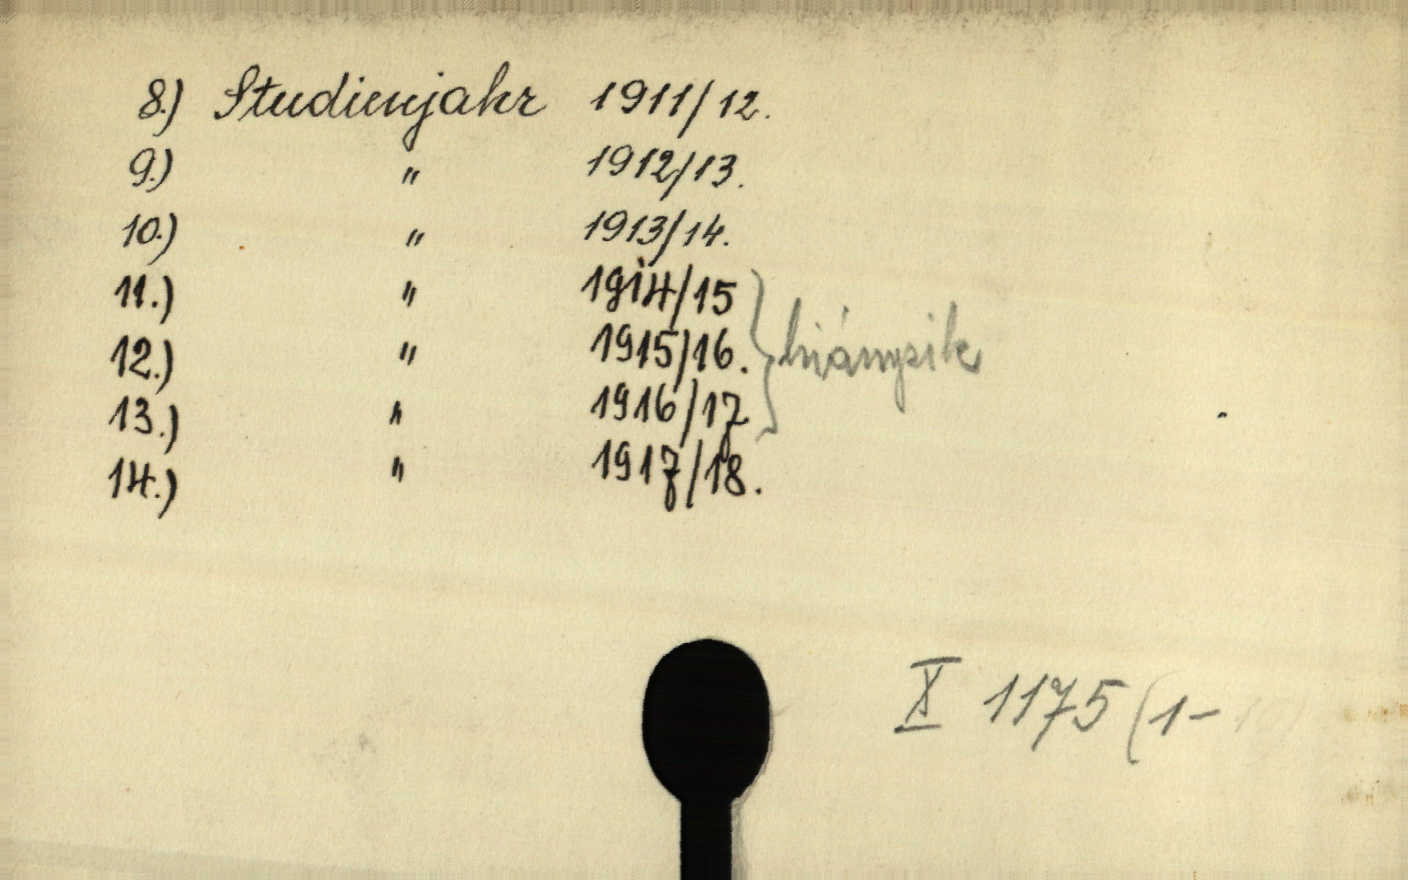 8.) Studienjahr 1911/12.
9.) " 1912/13.
10.) " 1913/14.
11.) " 1914/15
12.) " 1915/16. } hiányzik
13.) " 1916/17
14.) " 1917/18.
X 1175 (1-10)